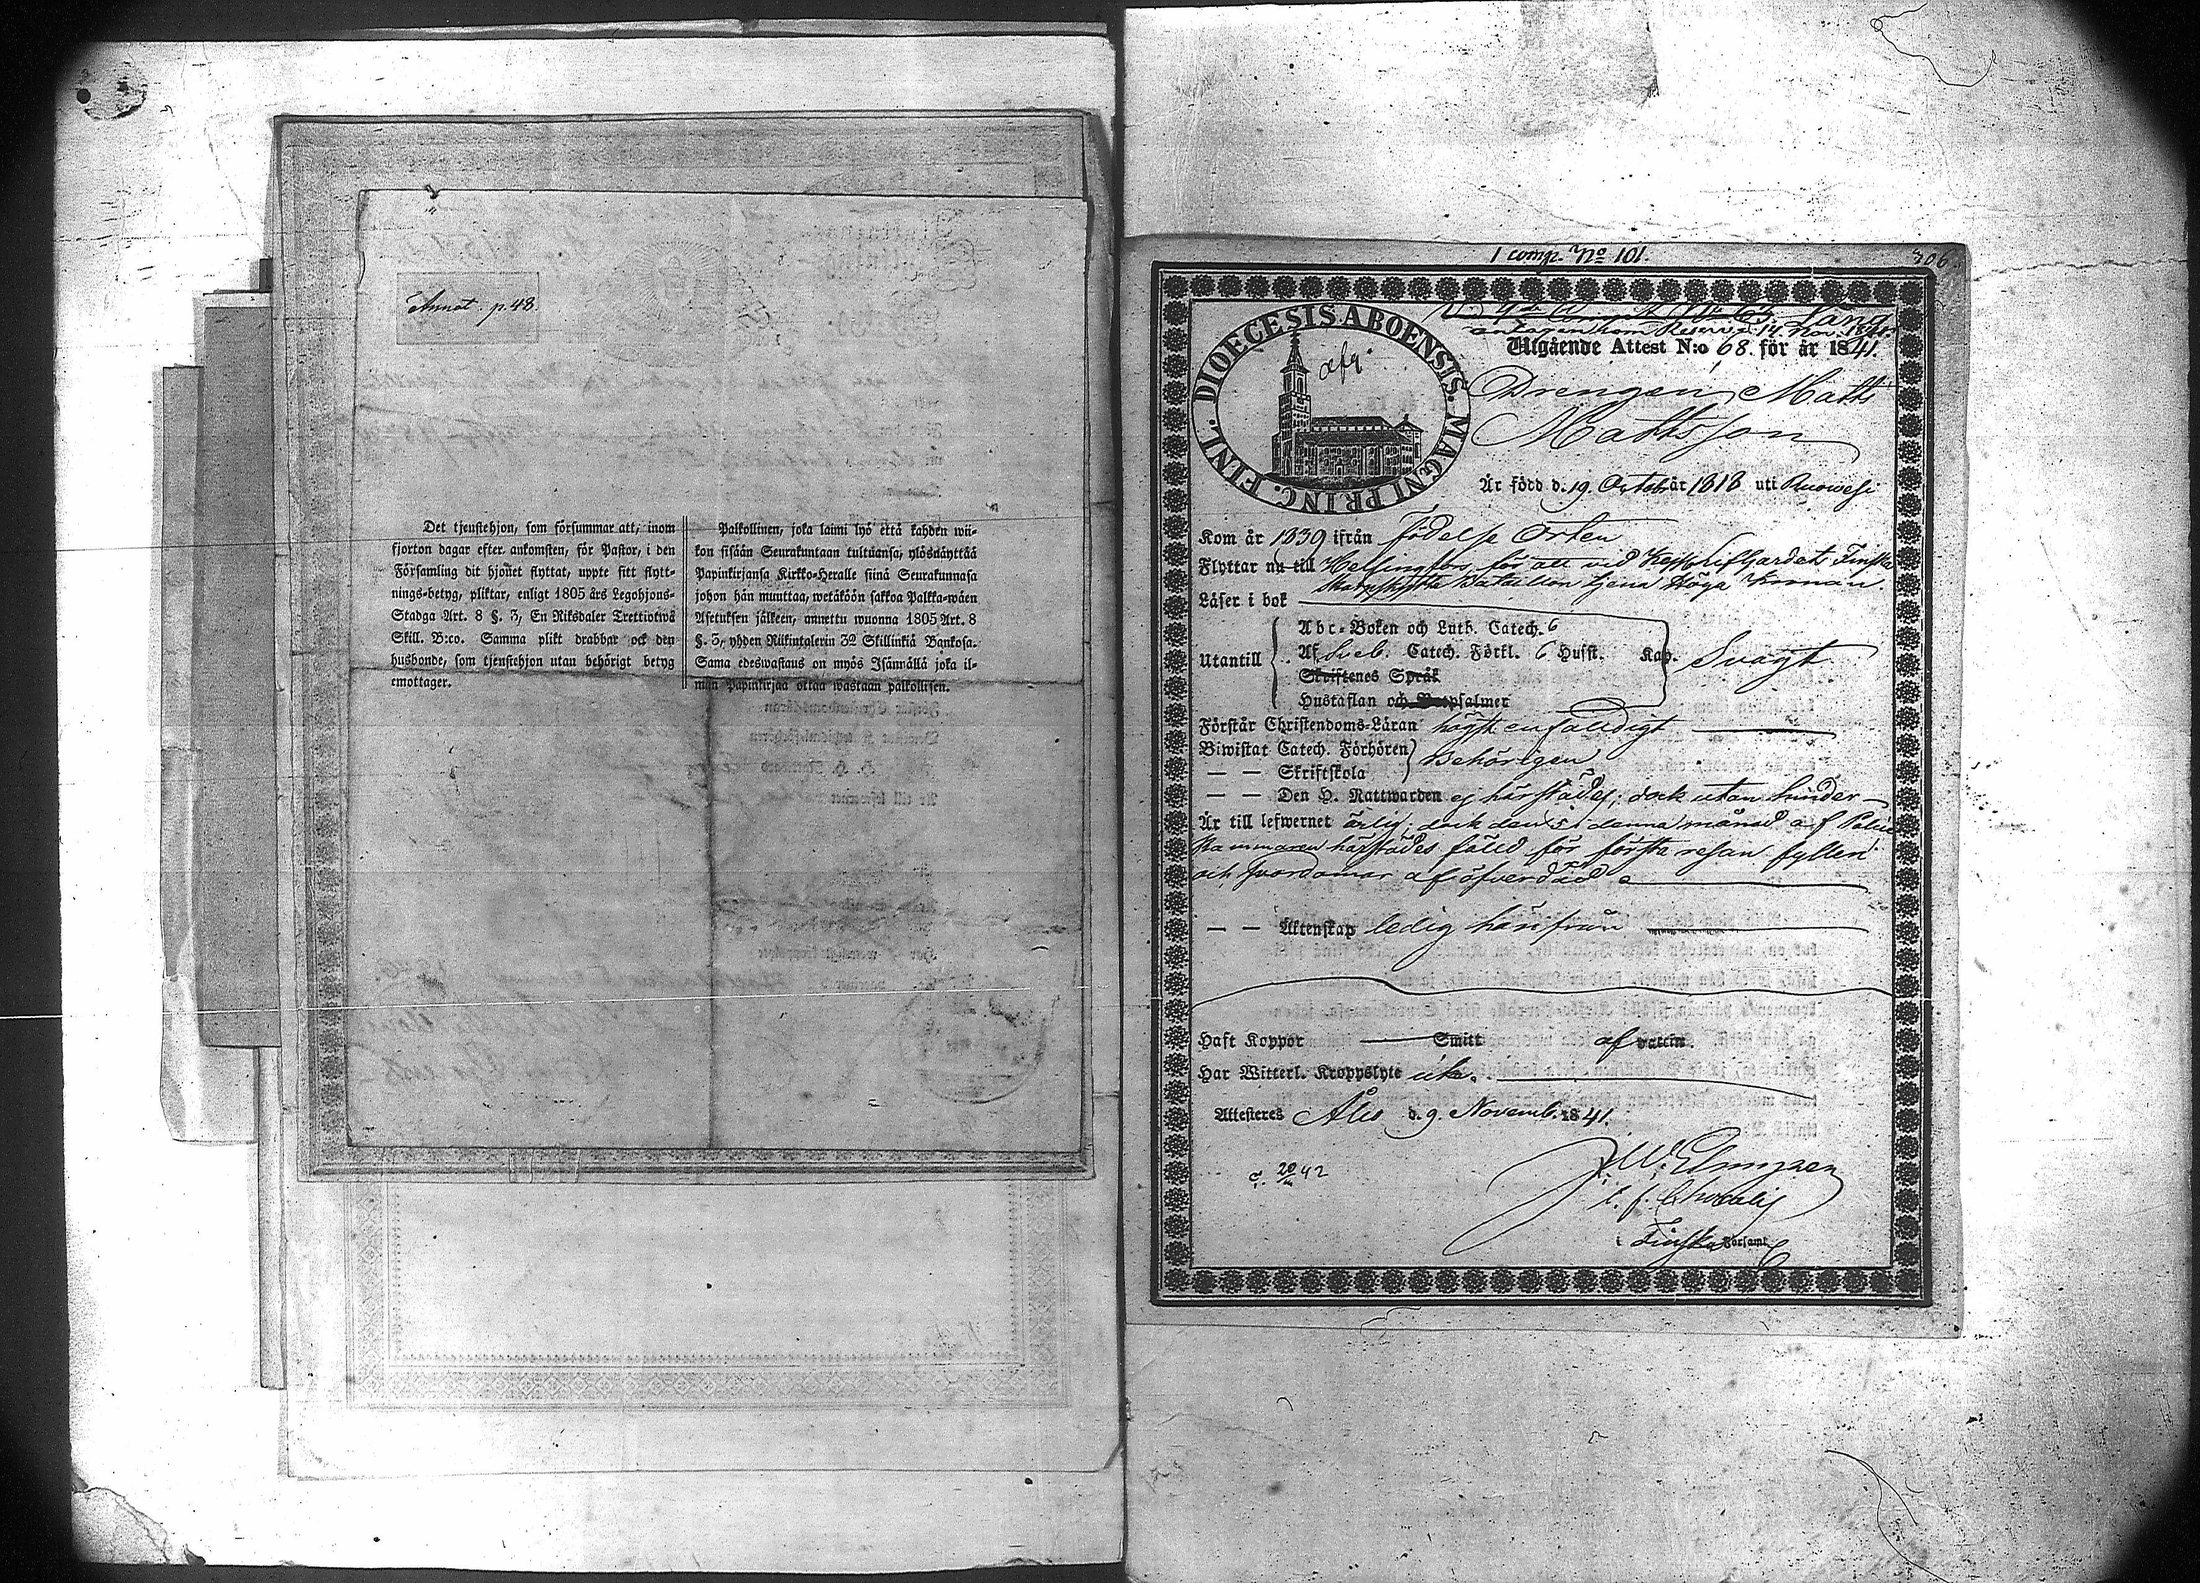 Annot. p. 48.
Det tjenstehjon, som försummar att, inom
fjorton dagar efter ankomsten, för Pastor, i den
Församling dit hjonet flyttat, uppte sitt flytt-
nings-betyg, pliktar, enligt 1805 års Legohjons-
Stadga Art. 8 §. 3, En Riksdaler Trettiotvå
Skill. B:co. Samma plikt drabbar ock den
husbonde, som tjenstehjon utan behörigt betyg
emottager.
Palkollinen, joka laimi lyö että kahden wii-
kon sisään Seurakuntaan tultuansa, ylösnäyttää
Papinkirjansa Kirkko-Heralle siinä Seurakunnasa
johon hän muuttaa, wetäköön sakkoa Palkka-wäen
Asetuksen jälkeen, annettu wuonna 1805 Art. 8
§. 3, yhden Riikintalerin 32 Skillinkiä Bankosa.
Sama edeswastaus on myös Isännällä joka il-
man Papinkirjaa ottaa wastaan palkollisen.
1 comp. No 101.
306.
antagen som Reserv d. 14. Nov. 1841
DIOECESIS ABOENSIS. MAGNI PRINC. FINL.
Utgående Attest N:o 68. för år 1841.
Drengen, Matts
Mattsson
Är född d. 19. Octob. år 1818 uti Ruowesi
Kom år 1839 ifrån födelse Orten
Flyttar nu till Helsingfors, för att vid Lifgardets Finska
Skarpskytte Bataillon tjena Höga Kronan.
Läser i bok
Utantill
Abc-Boken och Luth. Catech. 6
Af Sveb. Catech. Förkl. 6 Husst. Kap. Svagt
Skriftenes Språk
Hustaflan och psalmer
Förstår Christendoms-Läran högst enfaldigt
Biwistat Catech. Förhören
— — Skriftskola
Behörigen
— — Den H. Nattwarden ej härstädes, dock utan hinder
Är till lefwernet ärlig; dock den 5 i denna månad af Police
Kammaren härstädes fälld för första resan fylleri
och svordomar af öfverdåd
— — Äktenskap ledig härifrån
Haft Koppor Smitt af vaccin.
Har Witterl. Kroppslyte icke.
Attesteres Åbo d. 9. Novemb. 1841.
42
i Finska Församl.